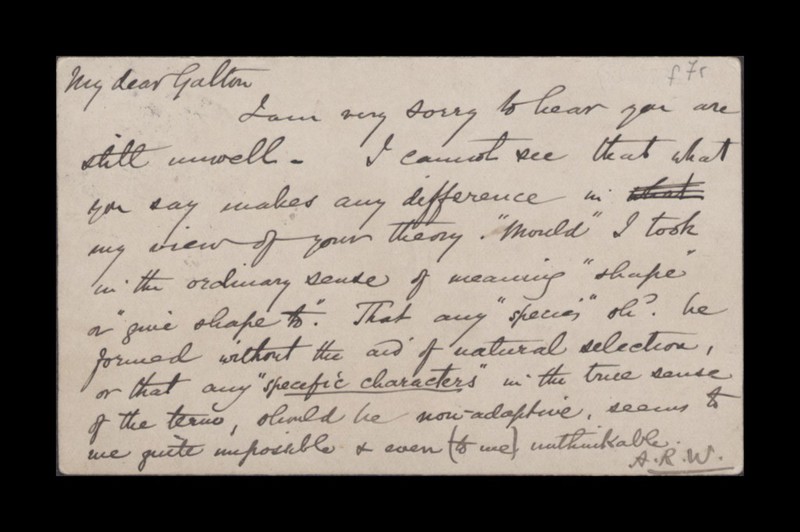 f 7r
My dear Galton
I am very sorry to hear you are
still unwell - I cannot see that what
you say makes any difference in what
my view of your theory. "Mould" I took
in the ordinary sense of meaning "shape"
or "give shape to". That any "species" shd. be
formed without the aid of natural selection,
or that any "specific characters" in the true sense
of the term, should be non-adaptive, seems to
me quite impossible & even (to me) unthinkable.
A.R.W.